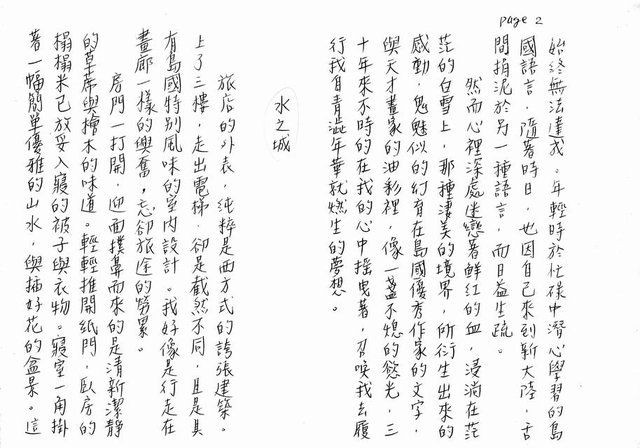 page 2
始終無法達成。年輕時於忙碌中潛心學習的島
國語言，隨著時日，也因自己來到新大陸，舌
間拍泥於另一種語言，而日益生疏。
然而心裡深處迷戀著鮮紅的血，浸淌在茫
茫的白雪上，那種淒美的境界，所衍生出來的
感動，鬼魅似的幻有在島國優秀作家的文字，
與天才畫家的油彩裡，像一盞不熄的慾光，三
十年來不時的在我的心中搖曳著，召喚我去履
行我自青澀年華就燃生的夢想。
水之城
旅店的外表，純粹是西方式的誇張建築。
上了三樓，走出電梯，卻是截然不同，且是具
有島國特別風味的室內設計。我好像是行走在
畫廊一樣的興奮，忘卻旅途的勞累。
房門一打開，迎面撲鼻而來的是清新潔靜
的草蓆與檜木的味道。輕輕推開紙門，臥房的
榻榻米已放妥入寢的被子與衣物。寢室一角掛
著一幅簡單優雅的山水，與插好花的盆景。這